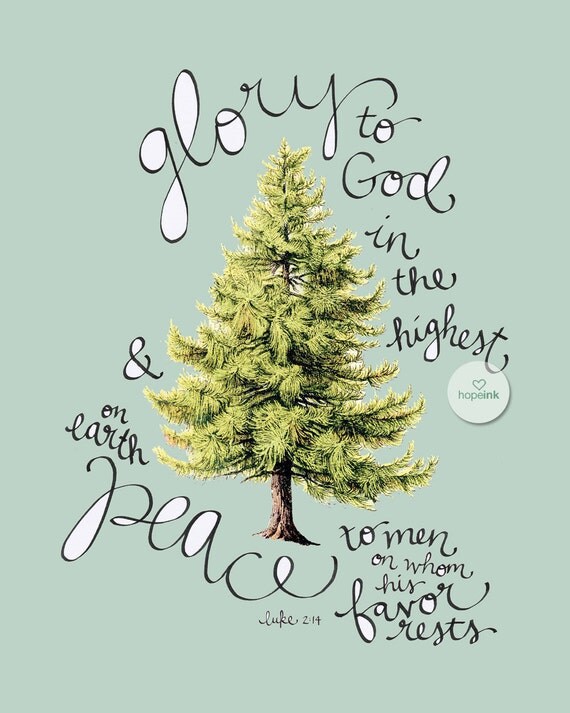 glory to
God
in
the
highest,
&
on
earth
peace
to men
on whom
his
favor
rests
luke 2:14
hopeink